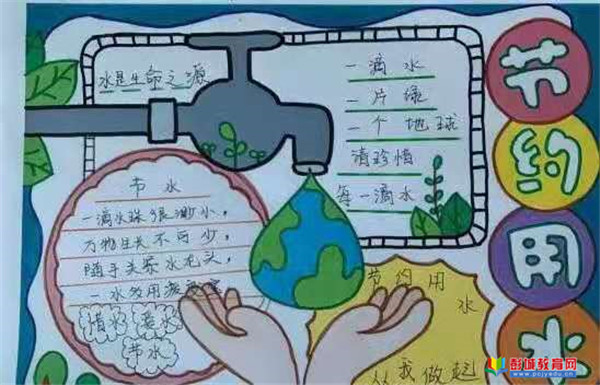 水是生命之源
一滴水
一片绿
一个地球
请珍惜
每一滴水
节水
一滴水珠很渺小，
万物生长不可少，
随手关紧水龙头，
一水多用
惜水 爱水
节水
节约用
水
从我做起
节
约
用
水
彭城教育网